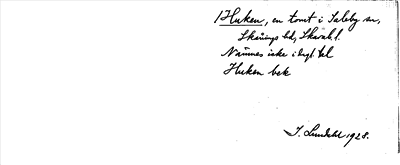 /Huken, en tomt i Saleby sn,
Skånings hd, Skarab. l.
Nämnes icke i bygd tal
Huken bek
J. Lundahl 1928.